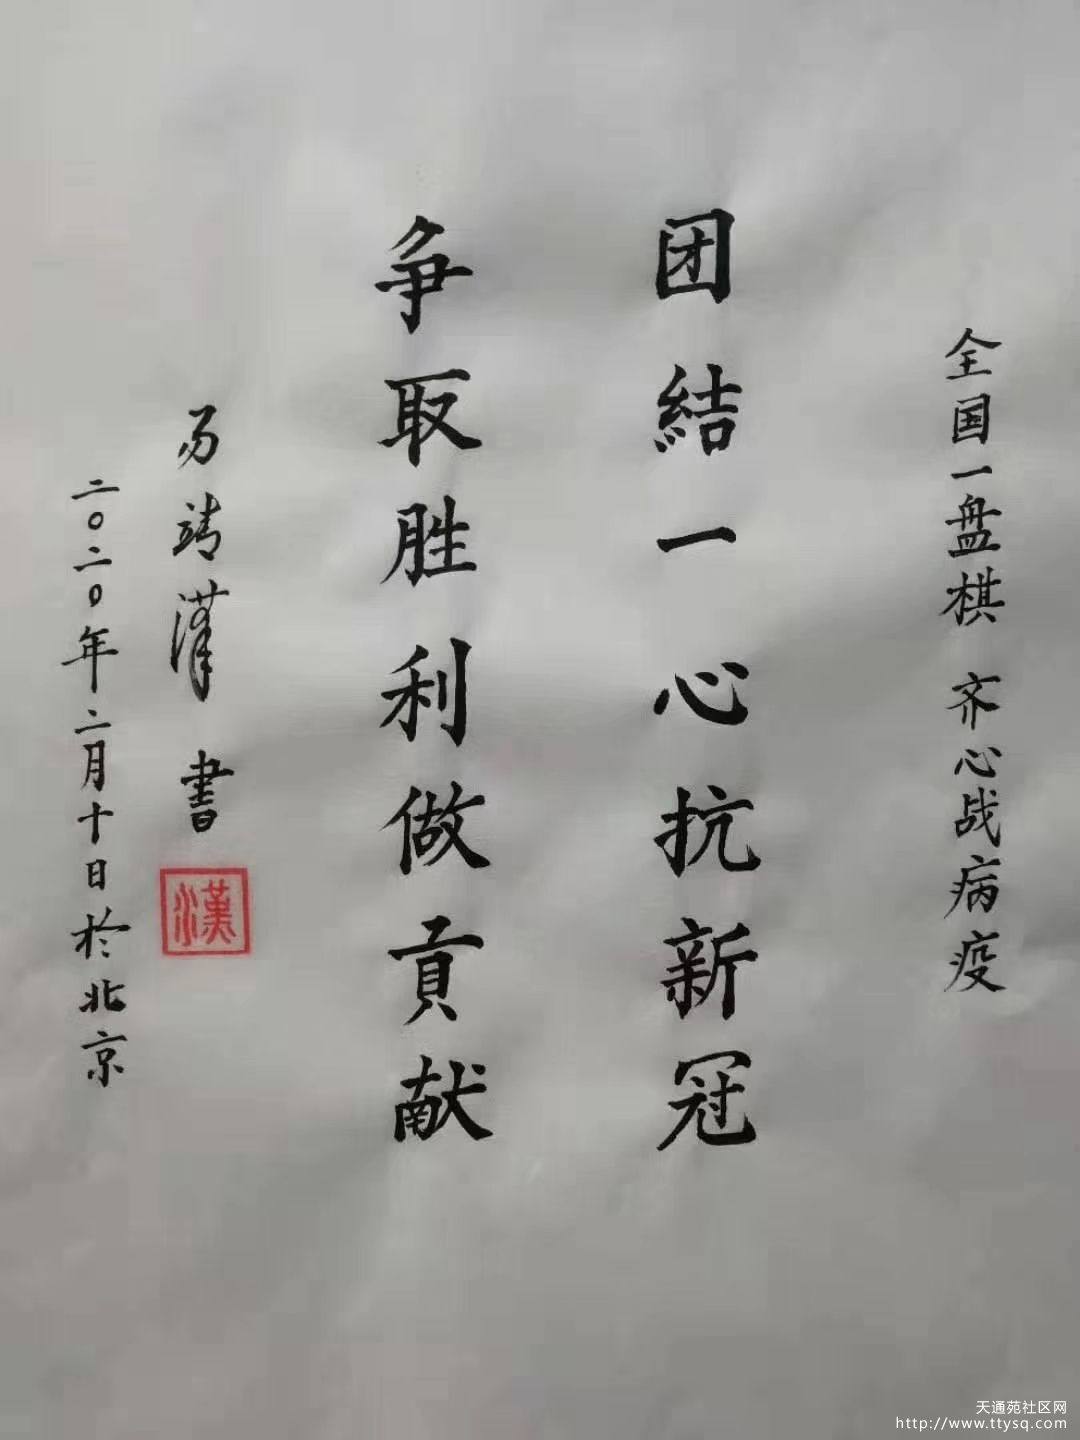 全国一盘棋 齐心战病疫
团結一心抗新冠
争取胜利做贡献
易靖漢 書
漢
二〇二〇年二月十日於北京
天通苑社区网
http://www.ttysq.com/